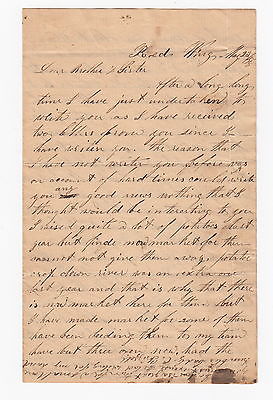 Red Wing May 24
Dear Brother & Sister
After a long long
time I have just undertaken to
write you as I have received
two letters from you since I
have written you. the reason that
I have not writen you before was
on account of hard times could write
you any good news nothing that I
thought would be interesting to you
I raised quite a lot of potatoes last
year but finde now market for the
can not give them away. potatoe
crop down river was an extra one
last year and that is why that there
is now market here for them but
I have made market for some of them
have been feeding them to my team
have but three cows now, had the